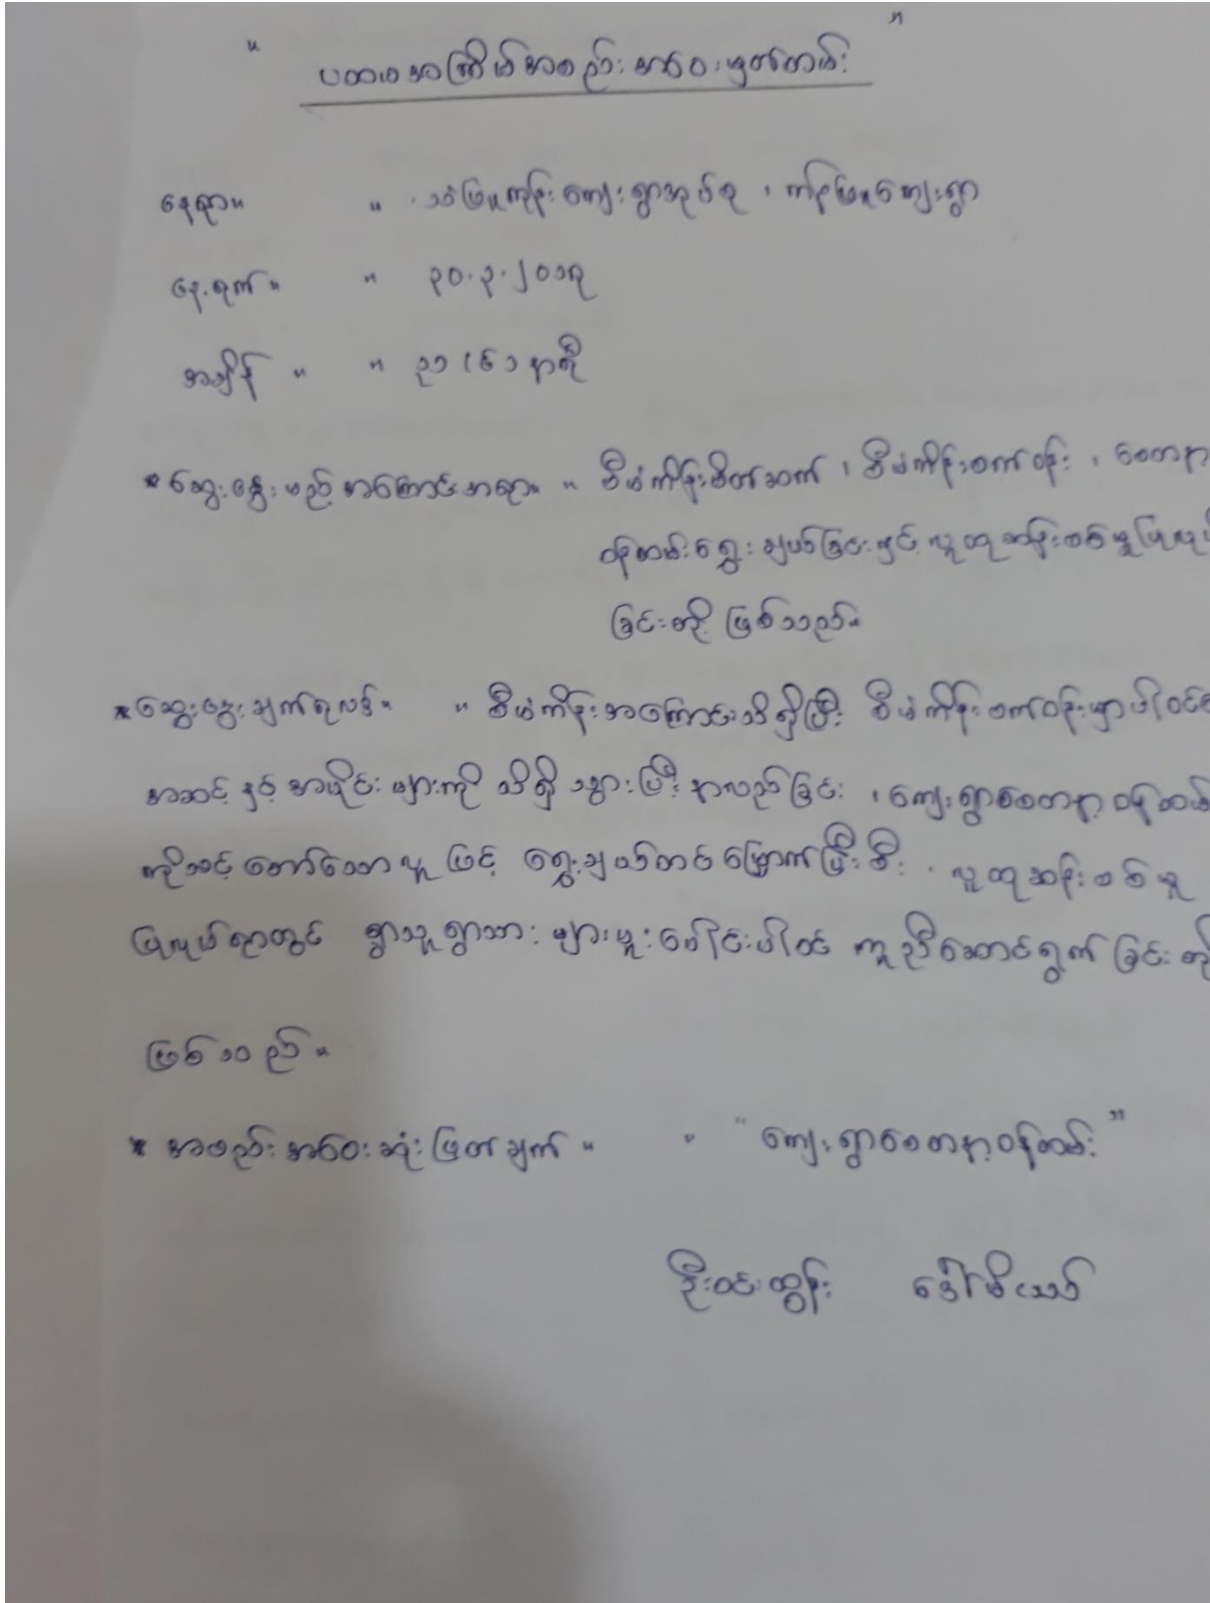 " ပထမအကြိမ်အစည်းအဝေးမှတ်တမ်း "
နေရာ။ ။ သဖြူကုန်းကျေးရွာအုပ်စု ၊ ကင်ဖြူကျေးရွာ
နေ့ရက်။ ။ ၃၀.၃.၂၀၁၉
အချိန် ။ ။ ၃၁း၆၁ နာရီ
* ဆွေးနွေးမည့်အကြောင်းအရာ။ ။ စီမံကိန်းမိတ်ဆက် ၊ စီမံကိန်းစက်ဝန်း ၊ စေတနာ
ဝန်ထမ်းရွေးချယ်ခြင်းနှင့် လူထုဆန်းစစ်မှုပြုလုပ်
ခြင်းတို့ ဖြစ်သည်။
* ဆွေးနွေးချက်ရလဒ်။ ။ စီမံကိန်းအကြောင်းသိရှိပြီး စီမံကိန်းစက်ဝန်းမှာပါဝင်
အဆင့်နှင့် အပိုင်းများကို သိရှိသွားပြီး နားလည်ခြင်း ၊ ကျေးရွာစေတနာ့ဝန်ထမ်း
ကိုသင့်တော်သောလူဖြင့် ရွေးချယ်တင်မြှောက်ပြီးစီး ၊ လူထုဆန်းစစ်မှု
ပြုလုပ်ရာတွင် ရွာသူရွာသားများမှပူးပေါင်းပါဝင် ကူညီဆောင်ရွက်ခြင်းတို့
ဖြစ်သည်။
* အစည်းအဝေးဆုံးဖြတ်ချက်။ ။ " ကျေးရွာစေတနာ့ဝန်ထမ်း "
ဦးဝင်းထွန်း ဒေါ်မိ